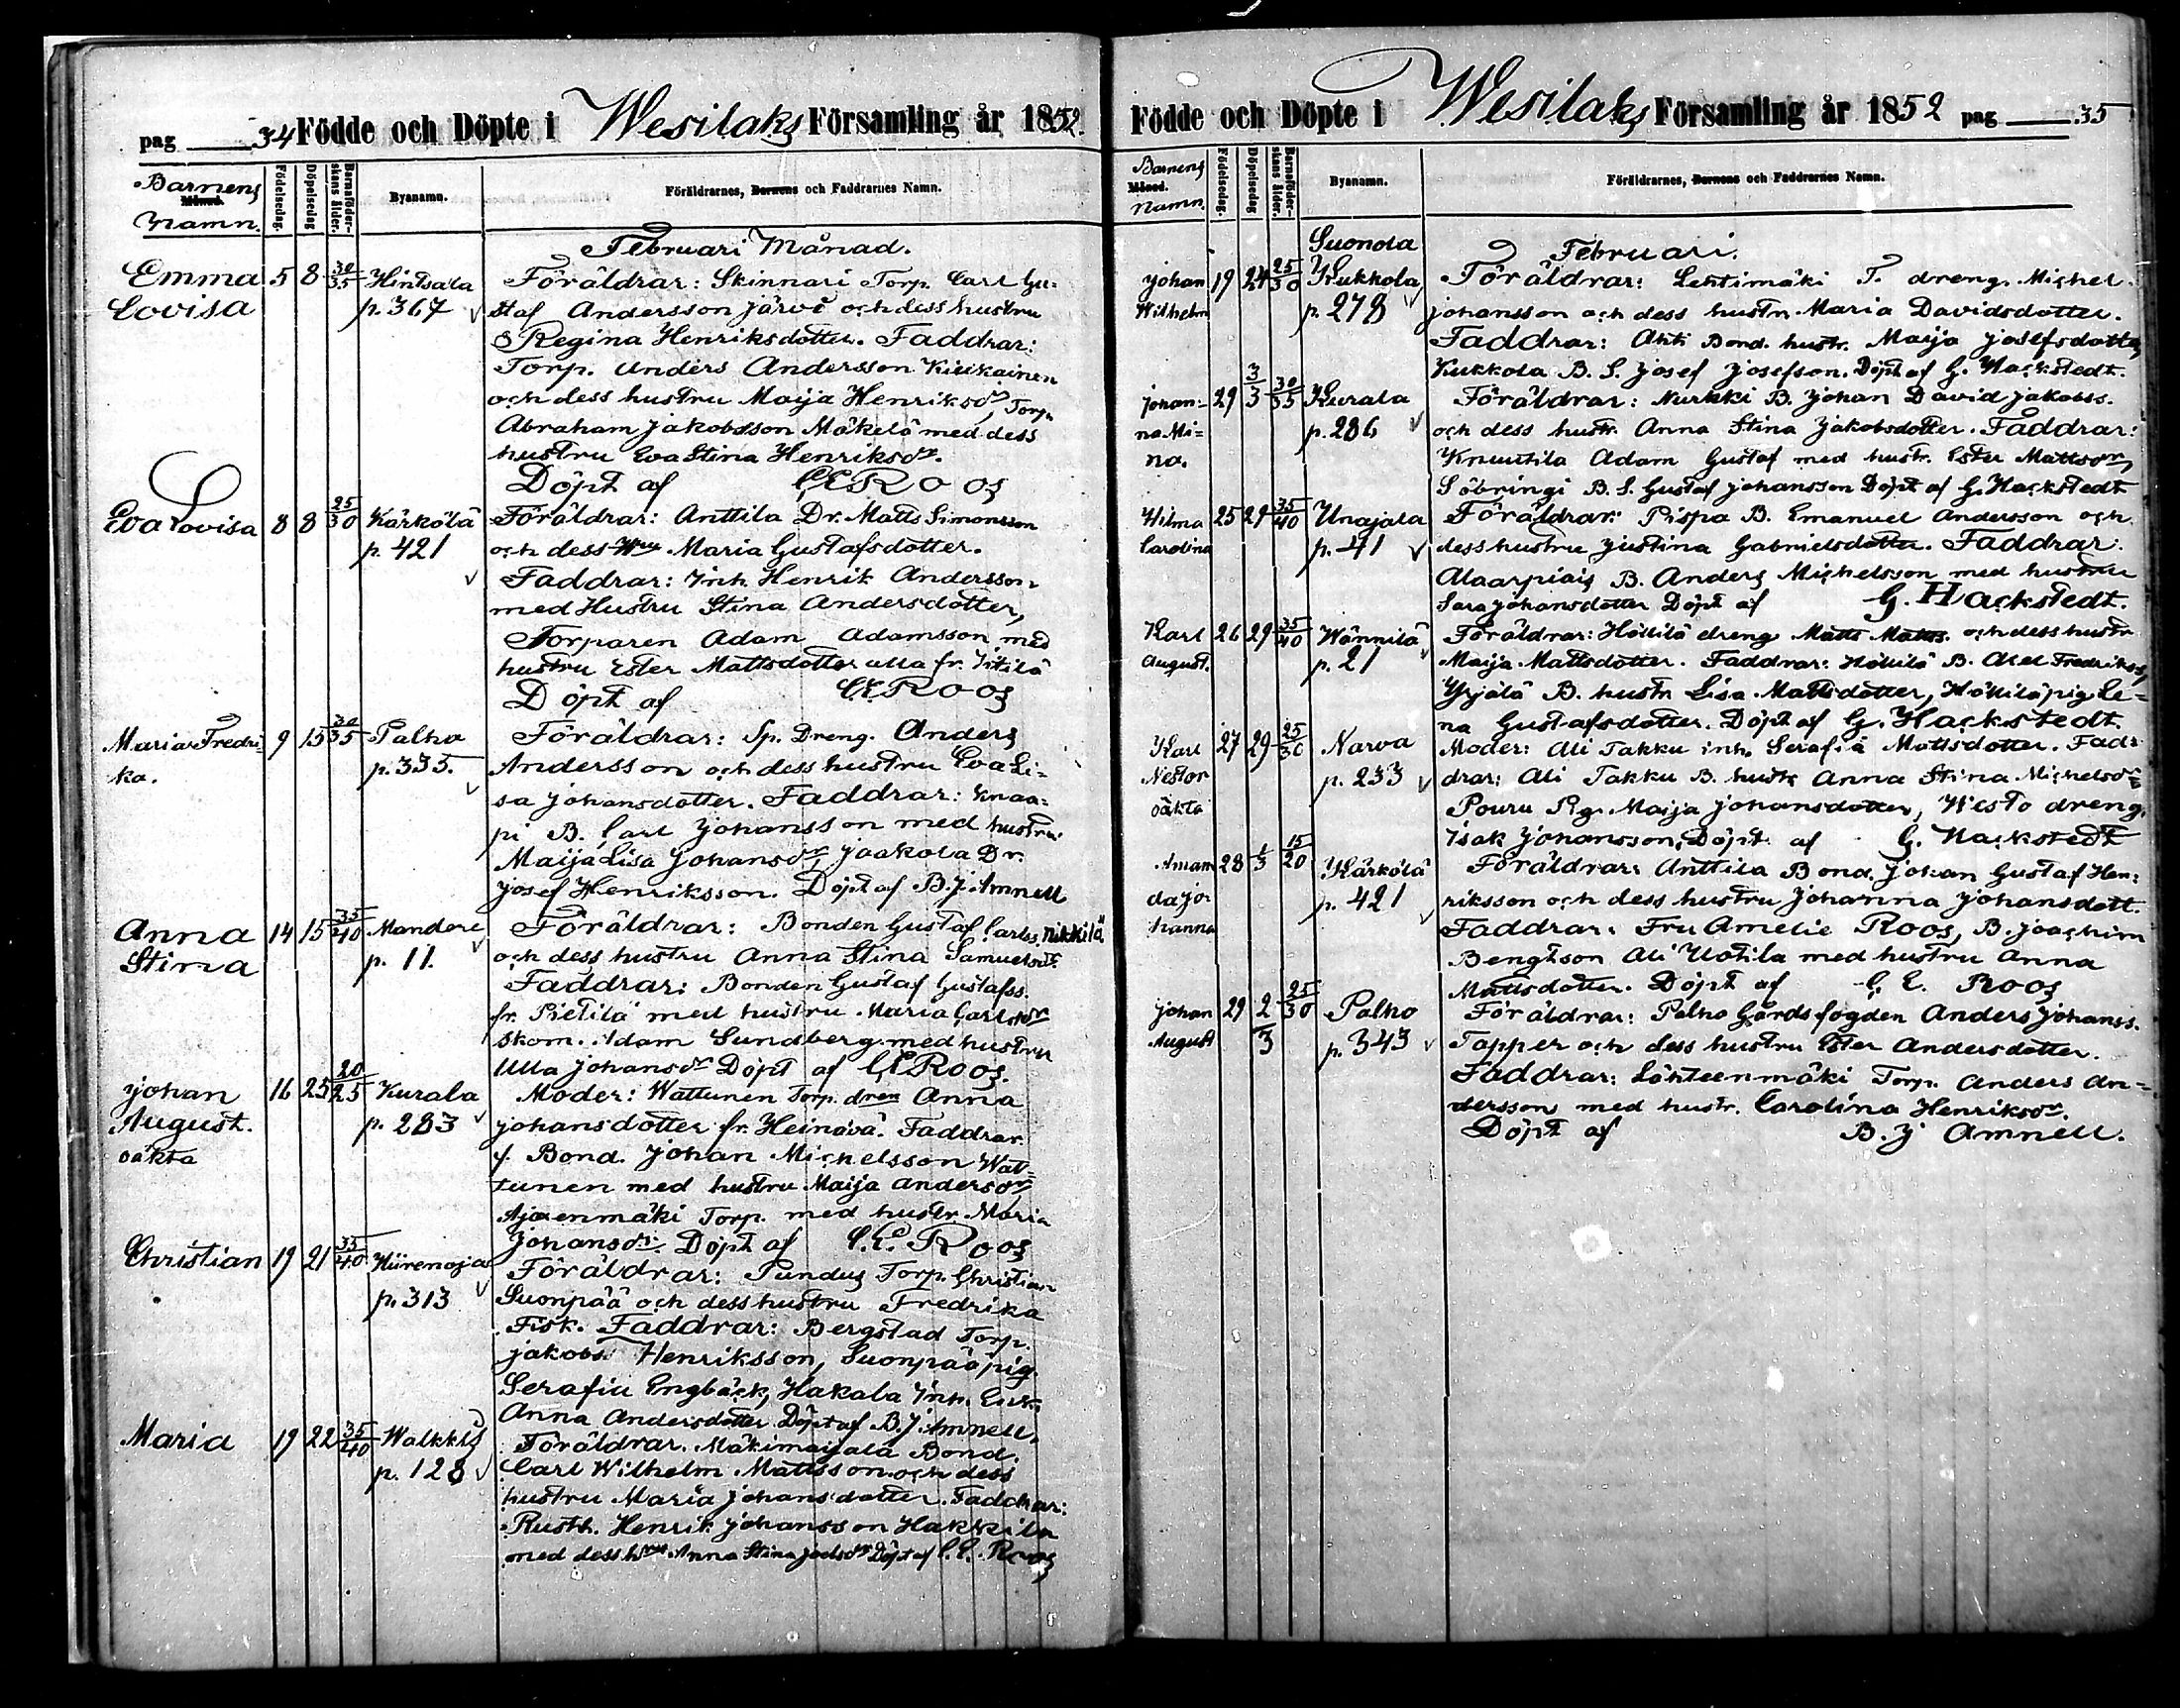 pag 34 Födde och Döpte i Wesilaks Församling år 1852.
Barnens Månad. Namn. Födelsedag. Döpelsedag Barnaföderskans ålder. Byanamn. Föräldrarnes, Barnens och Faddrarnes Namn.
Februari Månad.
Emma 5 8 30/35 Hintsala Föräldrar: Skinnari Torp. Carl Gu-
Lovisa p. 367 staf Andersson Järvi och dess hustru
Regina Henriksdotter. Faddrar:
Torp. Anders Andersson Kiikainen
och dess hustru Maija Henriksdr, Torp.
Abraham Jakobsson Mäkelä med dess
hustru Eva Stina Henriksdr.
Döpt af C E Roos
Eva Lovisa 8 8 25/30 Kärkölä Föräldrar: Anttila Dr. Matts Simonsson
p. 421 och dess Hru Maria Gustafsdotter.
Faddrar: Inh. Henrik Andersson
med Hustru Stina Andersdotter,
Torparen Adam Adamsson med
hustru Ester Mattsdotter alla fr.
Döpt af C E Roos
Maria Fredri- 9 15 30/35 Palho Föräldrar: Sp. Dreng. Anders
ka. p. 335. Andersson och dess hustru Eva Li-
sa Johansdotter. Faddrar: Knaa-
pi B. Carl Johansson med hustru
Maija Lisa Johansdr, Jaakola Dr.
Josef Henriksson. Döpt af B. J. Amnell
Anna 14 15 35/40 Mandere Föräldrar: Bonden Gustaf Carlss. Nikkilä
Stina p. 11. och dess hustru Anna Stina Samuelsdr.
Faddrar: Bonden Gustaf Gustafss.
fr. Pietilä med hustru Maria Carlsdr
skom. Adam Sundberg med hustru
Ulla Johansdr Döpt af C E Roos.
Johan 16 25 20/25 Kurala Moder: Wattunen Torp. dren Anna
August. p. 283 Johansdotter fr. Heinävä. Faddrar
oäkta f. Bond. Johan Michelsson Wat-
tunen med hustru Maija Andersdr,
Ajosenmäki Torp. med hustr. Maria
Johansdr. Döpt af C. E. Roos
Christian 19 21 35/40 Hiirenoja Föräldrar: Pundus Torp. Christian
p. 313 Suonpää och dess hustru Fredrika
Fisk. Faddrar: Bergstad Torp.
Jakobs Henriksson, Suonpää pig.
Serafia Engbäck, Hakala Inh. Enk.
Anna Andersdotter Döpt af B. J. Amnell.
Maria 19 22 35/40 Walkkis Föräldrar. Mäkimaijala Bond.
p. 128 Carl Wilhelm Mattsson och dess
hustru Maria Johansdotter. Faddrar:
Rusth. Henrik Johansson Hakkila
med dess hru Anna Stina Joelsdr Döpt af C. E. Roos
Födde och Döpte i Wesilaks Församling år 1852 pag 35
Barnens Månad. Namn. Födelsedag. Döpelsedag Barnaföderskans ålder. Byanamn. Föräldrarnes, Barnens och Faddrarnes Namn.
Suonola Februari.
Johan 19 24 25/30 Kukkola Föräldrar: Lehtimäki T. dreng. Michel
Wilhelm p. 278 Johansson och dess hustr. Maria Davidsdotter.
Faddrar: Ahti Bond. hustr. Maija Josefsdotter,
Kukkola B. S. Josef Josefson. Döpt af G. Hackstedt.
Johan- 29 3/3 30/35 Kurala Föräldrar: Nurkki B. Johan David Jakobss.
na Mi- p. 286 och dess hustr. Anna Stina Jakobsdotter. Faddrar:
na. Knuutila Adam Gustaf med hustr. Ester Mattsdr,
Söbringi B. S. Gustaf Johansson Döpt af G. Hackstedt
Hilma 25 29 35/40 Unajala Föräldrar: Pispa B. Emanuel Andersson och
Carolina p. 41 dess hustru Justina Gabrielsdotter. Faddrar:
Alaarpiais B. Anders Michelsson med hustru
Sara Johansdotter Döpt af G. Hackstedt.
Karl 26 29 35/40 Wännilä Föräldrar: Höllilä dreng Matts Matss. och dess hustr
August. p. 21 Maija Mattsdotter. Faddrar: Höllilä B. Axel Fredrikss,
Yrjölä B. hustr Lisa Mattsdotter, Höllilä pig Le-
na Gustafsdotter. Döpt af G. Hackstedt
Karl 27 29 25/30 Narva Moder: Ali Takku inh. Serafia Mattsdotter. Fad-
Nestor p. 233 drar: Ali Takku B. hustr Anna Stina Michelsdr
oäkta Pouru Pig. Maija Johansdotter, Westo dreng.
Isak Johansson, Döpt af G. Hackstedt
Aman 28 1/3 15/20 Kärkölä Föräldrar: Anttila Bond. Johan Gustaf Hen-
da Jo- p. 421 riksson och dess hustru Johanna Johansdott.
hanna Faddrar: Fru Amelie Roos, B. Joachim
Bengtson Ali Uotila med hustru Anna
Mattsdotter. Döpt af C. E. Roos
Johan 29 2/3 25/30 Palho Föräldrar: Palho Gårdsfogden Anders Johanss.
August p. 343 Tapper och dess hustru Ester Andersdotter.
Faddrar: Lähteenmäki Torp. Anders An-
dersson med hustr. Carolina Henriksdr.
Döpt af B. J Amnell.